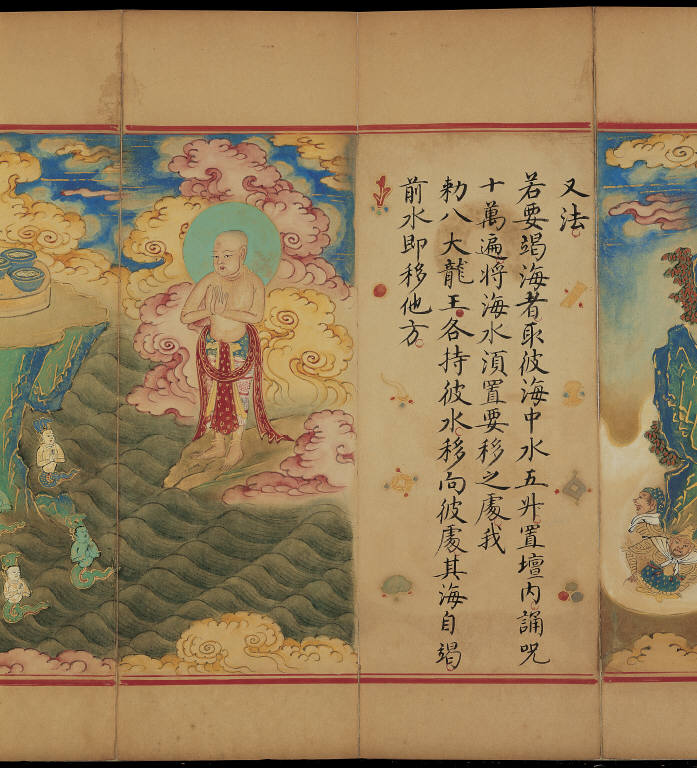 又法
若要竭海者取彼海中水五升置壇内誦呪
十萬遍將海水湏置要移之處我
勅八大龍王各持彼水移向彼處其海自竭
前水即移他方